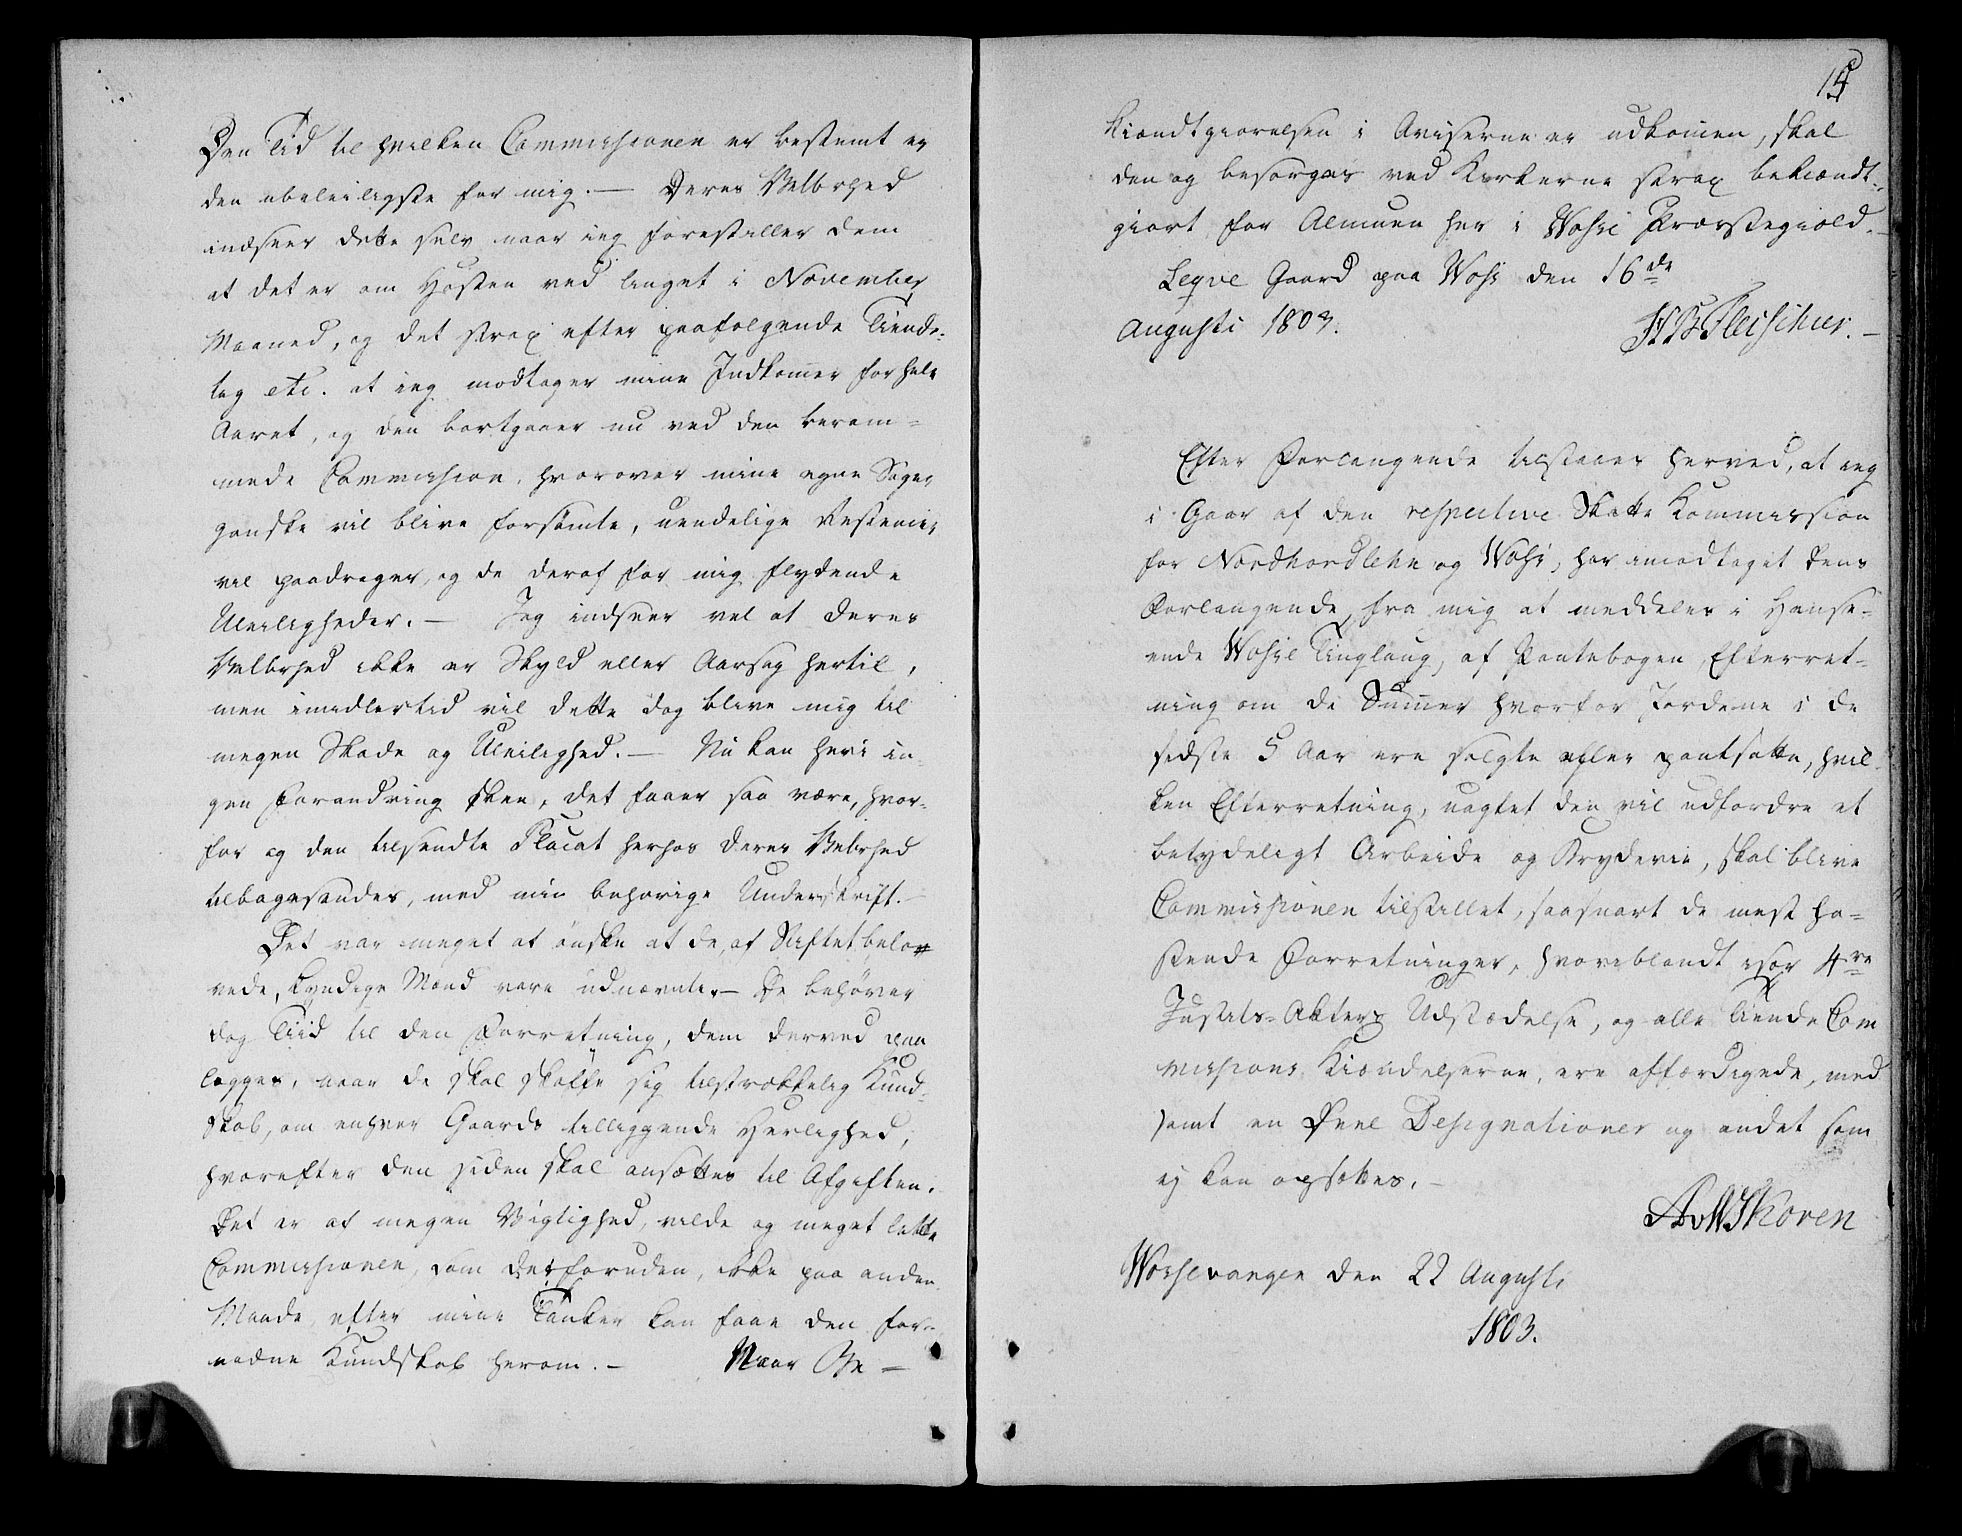 Den Tid til hvilken Commissionen er bestemt er
den ubeleiligste for mig. — Deres Velbrhed
indseer dette selv naar ieg forestiller dem
at det er om Høsten ved Tinget i November
Maaned, og det strax efter paafølgende Tiende-
tag etc. at ieg modtager mine Indkommer for hele
Aaret, og den bortgaaer nu ved den beram-
mede Commission, hvorover mine egne Sager
ganske vil blive forsømte, uendelige Restencier
vil paadrages, og de deraf for mig flydende
Uleiligheder. — Jeg indseer vel at Deres
Velbrhed ikke er Skyld eller Aarsag hertil,
men imidlertid vil dette dog blive mig til
megen Skade og Uleilighed. — Nu kan heri in
gen Forandring skee, det faaer saa være, hvor-
for og den tilsendte Placat herhos Deres Velbrhed
tilbagesendes, med min behørige Underskrift. —
Det var meget at ønske at de, af Stiftet belo
vede, kyndige Mænd vare udnævnte. — De behøver
dog Tiid til den Forretning, dem derved paa
lægges, naar de skal skaffe sig tilstrækkelig Kund-
skab, om enhver Gaards tilliggende Herlighed,
hvorefter den siden skal ansættes til Afgiften.
Det er af megen Vigtighed, vilde og meget lette
Commissionen, som desforuden, ikke paa anden
Maade, efter mine Tanker kan faae den for-
nødne Kundskab herom. — Naar Be —
14
kiændtgiørelsen i Aviserne er udkommen, skal
den og besørges ved Kirkerne strax bekiændt-
giort for Almuen her i Vosse Præstegiæld. —
Leqve Gaard paa Voss den 16de
Augusti 1803.
H B Fleischer. —
Efter Forlangende tilstaaes herved, at ieg
i Gaar af den respective Skatte Kommission
for Nordhordlehn og Woss, har imodtaget dens
Forlangende, fra mig at meddeles i Hense-
ende Wosse Tinglaug, af Pantebogen, Efterret-
ning om de Summer hvorfor Jordene i de
sidste 5 Aar ere solgte eller pantsatte, hvil-
ken Efterretning, uagtet den vil udfordre et
betydeligt Arbeide og Kryderie, skal blive
Commissionen tilstillet, saasnart de mest ha-
stende Forretninger, hvoriblandt især 4re
Justits-Akters Udstædelse, og alle Tiende Com
missions Kiændelserne, ere affærdigede, med
samt en Deel Designationer og andet som
ej kan opsættes. —
A v W Koren
Wossevangen den 22 Augusti
1803.